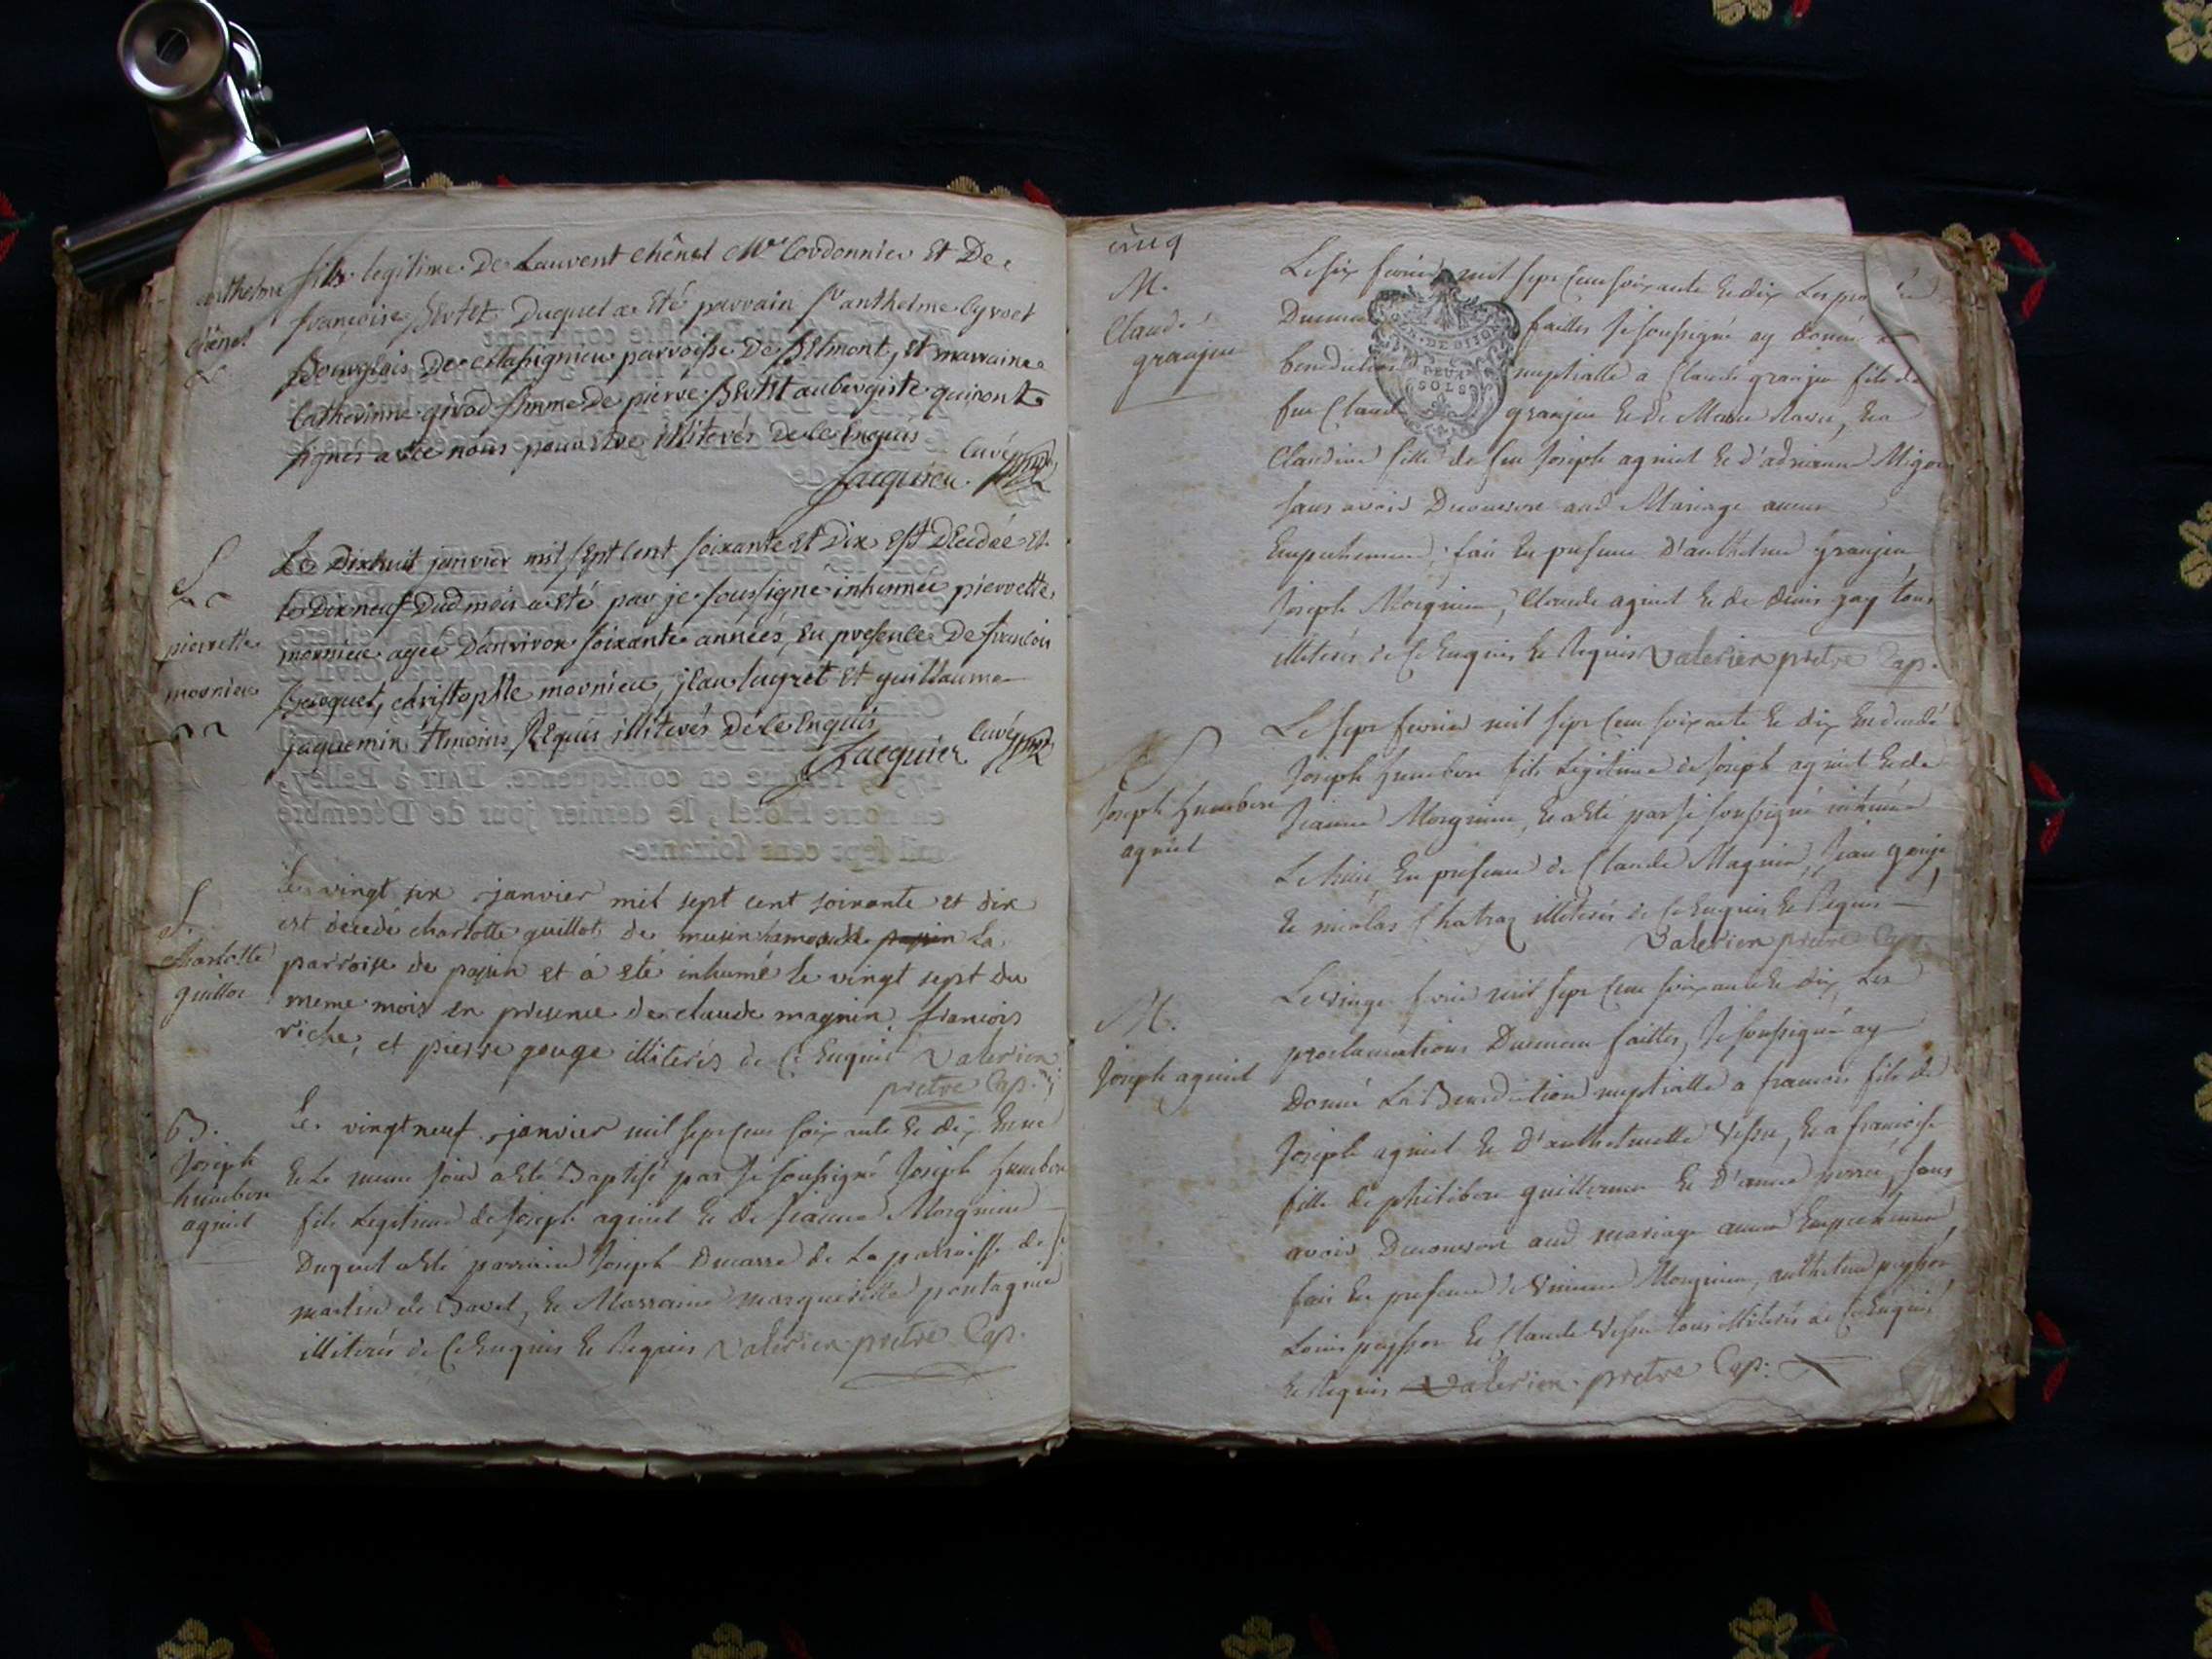 anthelme
chênel
fils legitime De Laurent chênel Me Cordonnier Et De
francoise Bertet Duquel a Eté parrain sr anthelme Cyvoct
Bourgeois De parroisse De Belmont, Et marraine
Catherinne girod femme De pierre Bertet aubergiste qui n'ont
signés avec nous pour être illiterés De ce Enquis
Jacquier Curé
S.
pierrette
mornieu
Le Dixhuit janvier mil sept cent soixante Et Dix Est Décédée Et
le Dixneuf Dud mois a Eté par je soussigné inhumée pierrette
mornieu agée D'anviron soixante années, En presence De francois
christophle mornieu, jean sugret Et guillaume
jaquemin témoins Requis illiterés De ce Enquis
Jacquier Curé
S.
charlotte
guillot
le vingt six janvier mil sept cent soixante et dix
est decedé charlotte guillot de musin hameau de passin La
parroise de passin et à eté inhumé le vingt sept du
meme mois en presence de claude magnin francois
riche, et pierre gouge illiterés de Ce Enquis Valerien
pretre Cap.
B.
Joseph
humbert
agniel
Le vingt neuf janvier mil sept cent soixante Et dix Est né
Et Le meme jour a Eté Baptisé par Je soussigné Joseph humbert
fils Legitime de Joseph agniel Et de jeanne Morgnieu
Duquel a Eté parrain Joseph Ducarre de La parroisse de st
martin de Bavel, Et Marraine margueritte pontagnie
illiterés de Ce Enquis Et Requis Valerien pretre Cap.
cinq
M.
Claude
granjeu
Le six fevrier mil sept cent soixante Et dix Les
Duement faittes Je soussigné ay donné La
benediction nuptialle a Claude granjeu fils de
feu Claude granjeu Et de Marie Ravier, Et a
Claudine fille de feu Joseph agniel Et d'adrianne
sans avoir Decouvert aud Mariage aucun
Empechement, fait En presence D'anthelme granjeu
Joseph Morgnieu, Claude agniel Et de Denis gay tous
illiterés de Ce Enquis Et Requis Valerien pretre Cap.
GEN. DE DIJON
DEUX
SOLS
S
Joseph humbert
agniel
Le sept fevrier mil sept cent soixante Et dix Est decedé
Joseph humbert fils Legitime de Joseph agniel Et de
Jeanne Morgnieu, Et a Eté par Je soussigné inhumé
Le huit En presence de Claude Magnin, Jean gouge
Et nicolas Chatraz illiterés de Ce Enquis Et Requis
Valerien pretre Cap.
M.
Joseph agniel
Le vingt fevrier mil sept cent soixante Et dix, Les
proclamations Duement faittes, Je soussigné ay
Donné La Benediction nuptialle a francois fils de
Joseph agniel Et D'anthelmette Et a francoise
fille de philibert guillermet Et D'anne perret, sans
avoir Decouvert aud mariage aucun Empechement,
fait En presence Morgnieu, anthelme peysson
Louis peysson Et Claude tous illiterés de Ce Enquis
Et Requis Valerien pretre Cap.